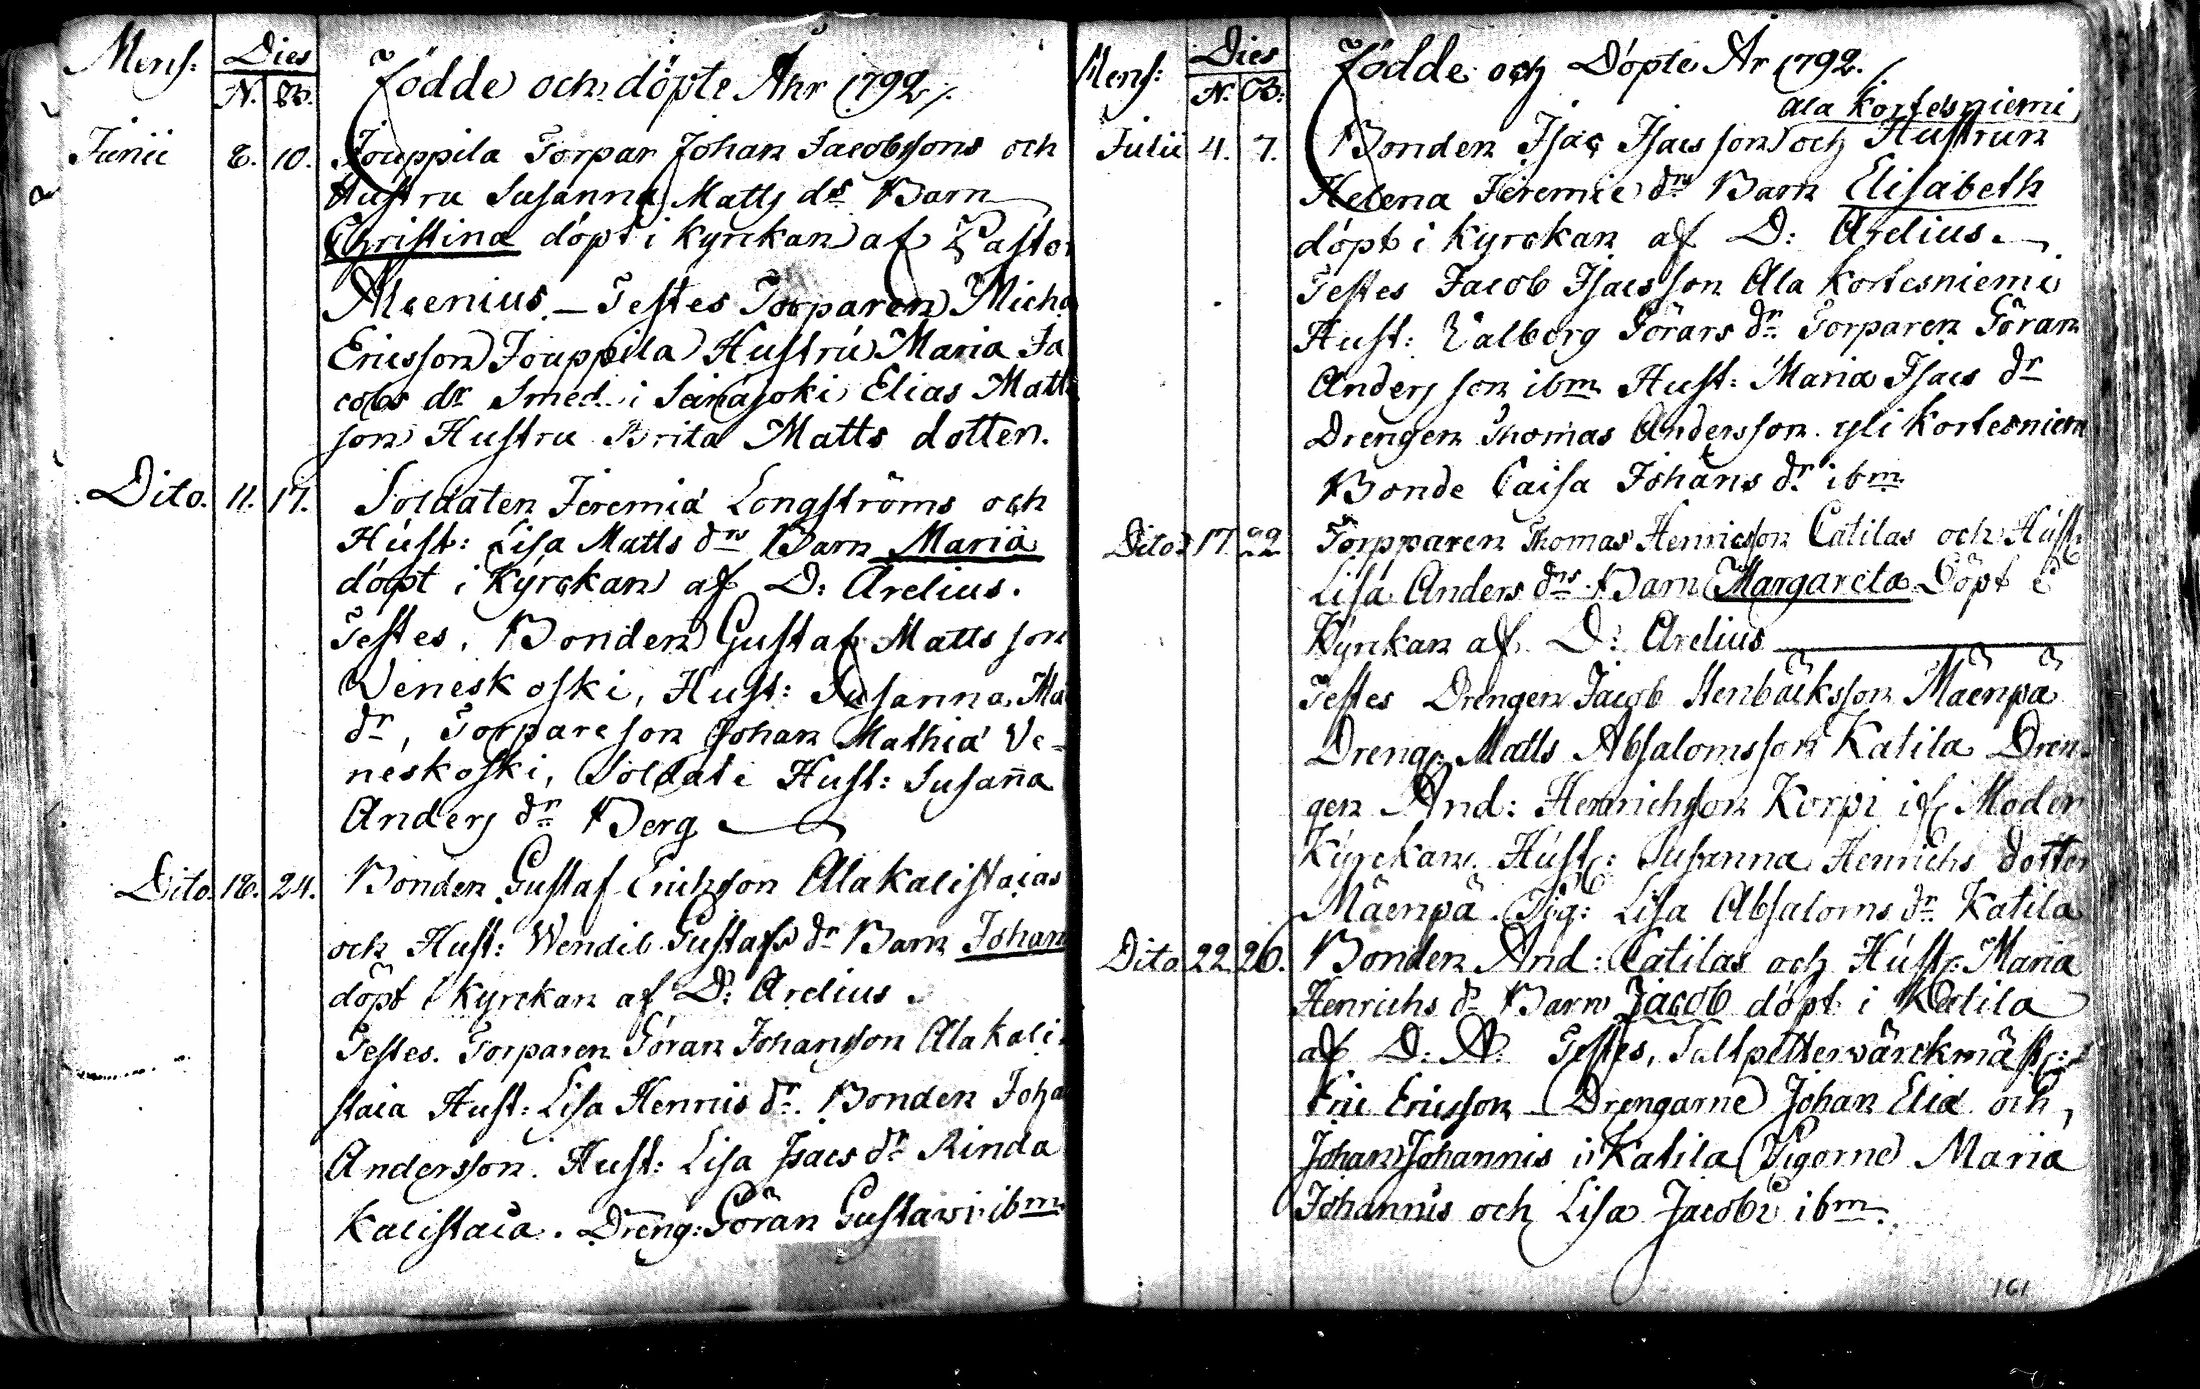 Mens: Dies
N. B. Födde och döpte Åhr 1792 /.
Junii 8. 10. Jouppila Torpar Johan Jacobssons och
Hustru Susanna Matts drs Barn
Christina döpt i Kyrckan af Pastor
Alcenius. — Testes Torparen Micha
Ericsson Jouppila Hustru Maria Ja
cobs dr Smed i Seinäjoki Elias Matts
son Hustru Brita Matts dotter.
Dito. 11. 17. Soldaten Jeremiä Longströms och
Hust: Lisa Matts drs Barn Maria
döpt i Kyrckan af D: Arelius.
Testes, Bonden Gustaf Matts son
Weneskoski, Hust: Susanna Ma
dr, Torpare son Johan Mathiä We=
neskoski, Soldate Hust: Susan̄a
Anders dr Berg
Dito. 18. 24. Bonden Gustaf Erichson Alakalistaias
och Hust: Wendil Gustafs dr Barn Johan
döpt i Kyrckan af D: Arelius.
Testes. Torparen Göran Johansson Alakali
staia Hust: Lisa Henrics dr. Bonden Joha
Andersson. Hust: Lisa Isacs dr Rinda
Kalistaia. Dreng: Göran Gustavi ibm
Mens: Dies
N. B: Födde och Döpte År 1792. /.
Ala Kortesniemi
Julii 4. 7. Bonden Isac Isacsson och Hustrun
Helena Jeremie drs Barn Elisabeth
döpt i Kyrckan af D: Arelius.
Testes Jacob Isacsson Ala Kortesniemi
Hust: Valborg Görans dr Torparen Göran
Anders son ibm Hust: Maria Isacs dr
Drengen Thomas Andersson yli Kortesniem
Bonde Caisa Johans dr ibm
Dito 17. 22 Torpparen Thomas Henricsson Catilas och Hust:
Lisa Anders drs Barn Margareta Döpt i
Kyrckan af D: Arelius
Testes Drengen Jacob Stenbäcksson Mäenpä
Dreng: Matts Absalomsson Katila Dren
gen And: Henrichsson Korpi if: Moder
Kyrckan. Hust: Susanna Henrichs dotter
Mäenpä. Pig: Lisa Absaloms dr Katila
Dito 22. 26. Bonden And: Catilas och Hust: Maria
Henrichs dr Barn Jacob döpt i Katila
af D: A: Testes, Saltpetterwärckmäst:
Eric Ericsson Drengarne Johan Eliæ och
Johan Johannis i Katila Pigorne Maria
Johannis och Lisa Jacobi ibm.
161